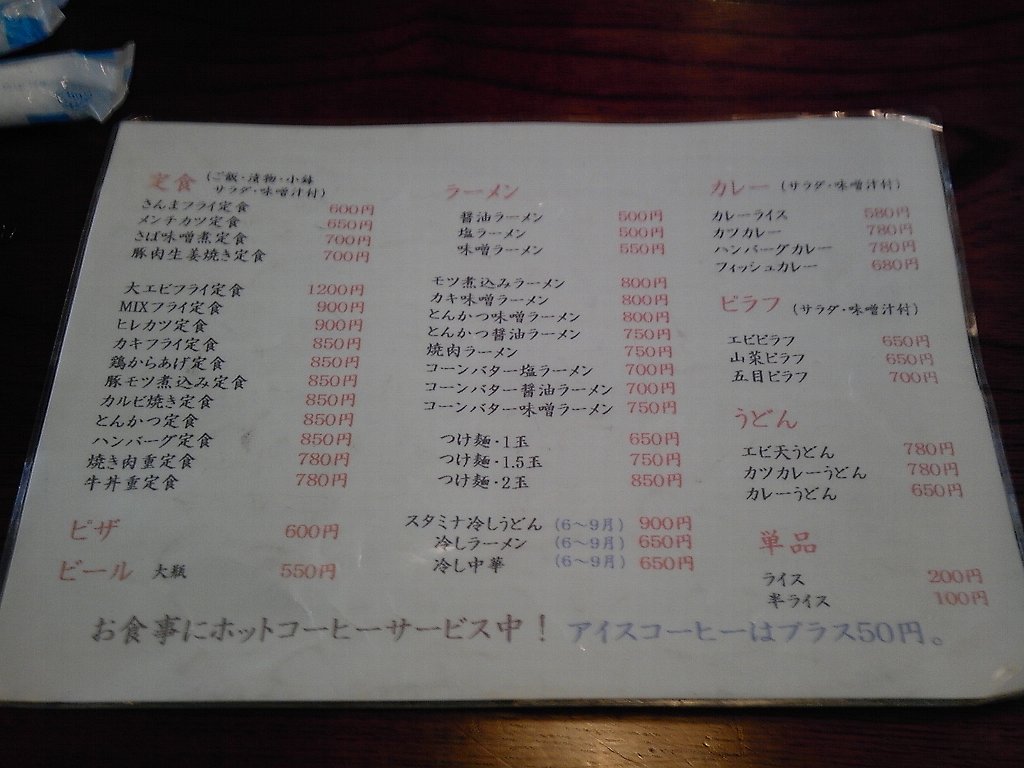 定食 (ご飯・漬物・小鉢
サラダ・味噌汁付)
さんまフライ定食 600円
メンチカツ定食 650円
さば味噌煮定食 700円
豚肉生姜焼き定食 700円
大エビフライ定食 1200円
MIXフライ定食 900円
ヒレカツ定食 900円
カキフライ定食 850円
鶏からあげ定食 850円
豚モツ煮込み定食 850円
カルビ焼き定食 850円
とんかつ定食 850円
ハンバーグ定食 850円
焼き肉重定食 780円
牛丼重定食 780円
ピザ 600円
ビール 大瓶 550円
ラーメン
醤油ラーメン 500円
塩ラーメン 500円
味噌ラーメン 550円
モツ煮込みラーメン 800円
カキ味噌ラーメン 800円
とんかつ味噌ラーメン 800円
とんかつ醤油ラーメン 750円
焼肉ラーメン 750円
コーンバター塩ラーメン 700円
コーンバター醤油ラーメン 700円
コーンバター味噌ラーメン 750円
つけ麺・1玉 650円
つけ麺・1.5玉 750円
つけ麺・2玉 850円
スタミナ冷しうどん (6～9月) 900円
冷しラーメン (6～9月) 650円
冷し中華 (6～9月) 650円
カレー (サラダ・味噌汁付)
カレーライス 580円
カツカレー 780円
ハンバーグカレー 780円
フィッシュカレー 680円
ピラフ (サラダ・味噌汁付)
エビピラフ 650円
山菜ピラフ 650円
五目ピラフ 700円
うどん
エビ天うどん 780円
カツカレーうどん 780円
カレーうどん 650円
単品
ライス 200円
半ライス 100円
お食事にホットコーヒーサービス中! アイスコーヒーはプラス50円。